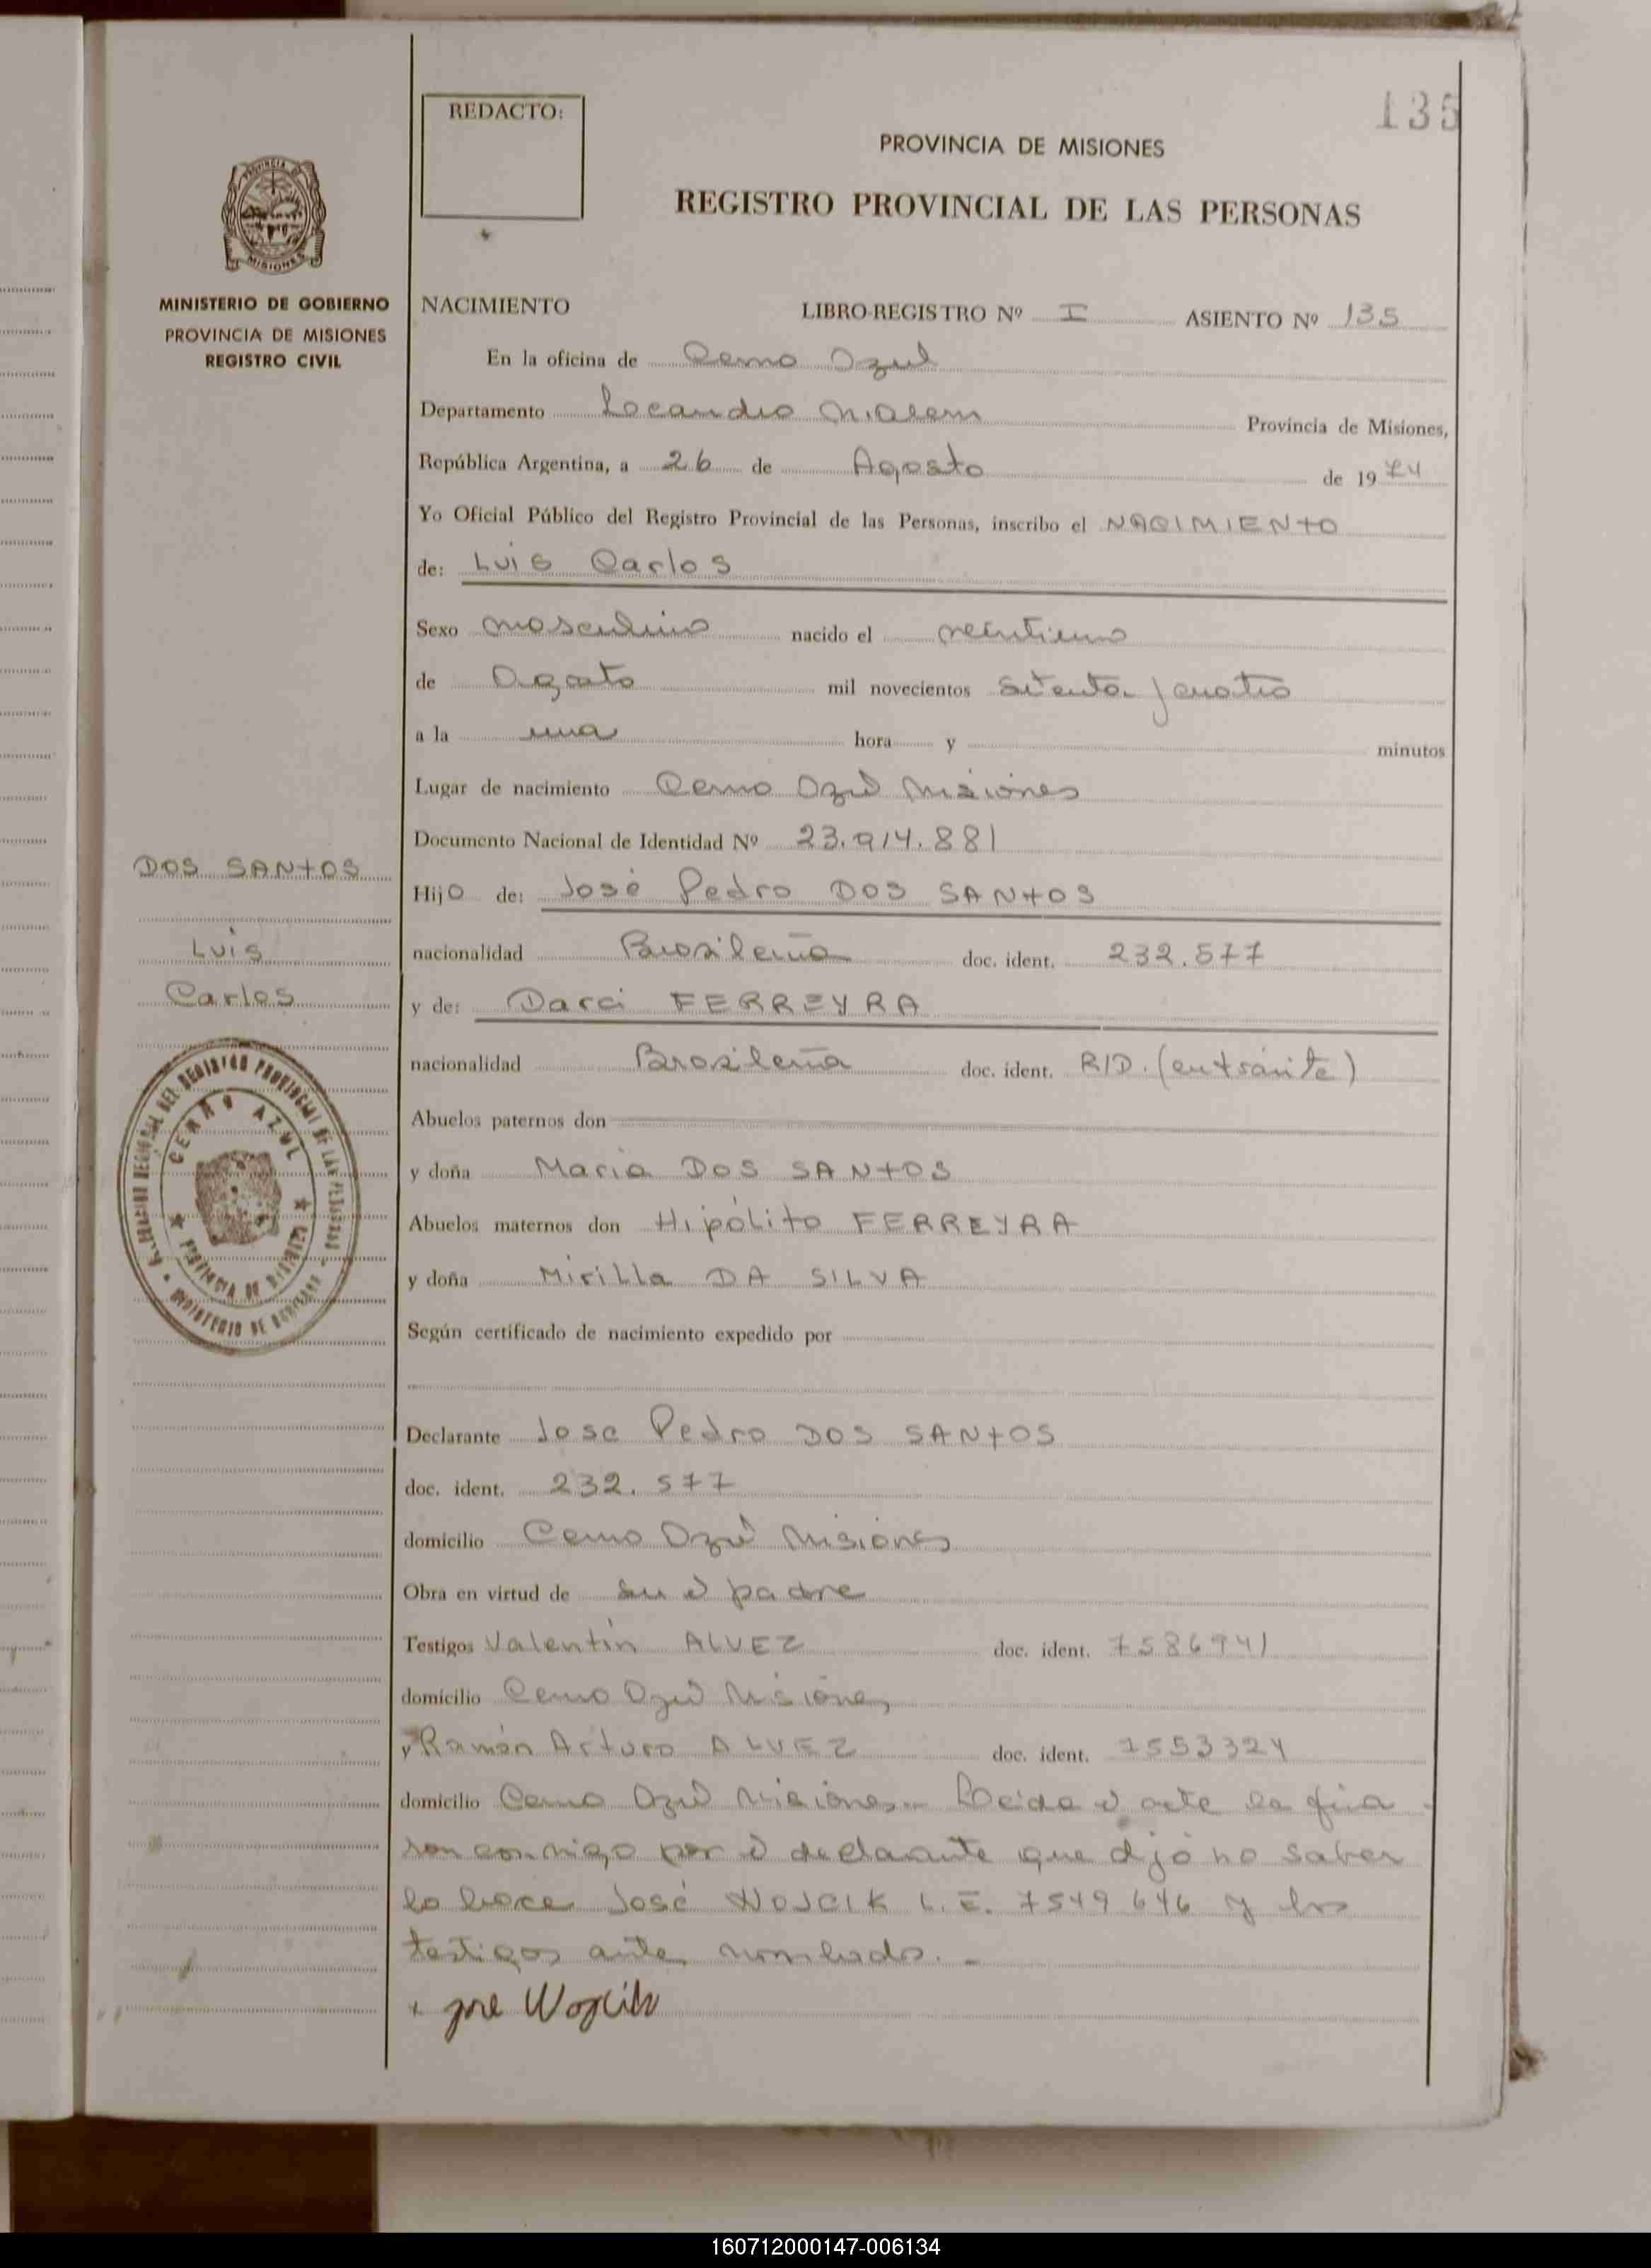 135
REDACTO:
PROVINCIA DE MISIONES
REGISTRO PROVINCIAL DE LAS PERSONAS
MISIONES
MINISTERIO DE GOBIERNO
PROVINCIA DE MISIONES
REGISTRO CIVIL
NACIMIENTO LIBRO-REGISTRO Nº I ASIENTO Nº 135
En la oficina de Cerro Azul
Departamento Leandro N. Alem Provincia de Misiones,
República Argentina, a 26 de Agosto de 1974
Yo Oficial Público del Registro Provincial de las Personas, inscribo el NACIMIENTO
de: Luis Carlos
Sexo masculino nacido el veintiuno
de Agosto mil novecientos setenta y cuatro
a la una hora y minutos
Lugar de nacimiento Cerro Azul Misiones
Documento Nacional de Identidad Nº 23.914.881
DOS SANTOS
Luis
Carlos
Hijo de: José Pedro DOS SANTOS
nacionalidad Brasileña doc. ident. 232.577
y de: Darci FERREYRA
nacionalidad Brasileña doc. ident. R/D. (en trámite)
Abuelos paternos don
y doña Maria DOS SANTOS
Abuelos maternos don Hipólito FERREYRA
y doña Mirilla DA SILVA
CERRO AZUL
PROVINCIA DE MISIONES
MINISTERIO DE GOBIERNO
Según certificado de nacimiento expedido por
Declarante Jose Pedro DOS SANTOS
doc. ident. 232.577
domicilio Cerro Azul Misiones
Obra en virtud de ser el padre
Testigos Valentín ALVEZ doc. ident. 7586941
domicilio Cerro Azul Misiones
y Ramón Arturo ALVEZ doc. ident. 7553324
domicilio Cerro Azul Misiones.- Leida el acta la firman
con migo por el declarante que dijo no saber
lo hace José WOJCIK L.E. 7549646 y los
testigos ante nombrados.-
x jose Wojcik
160712000147-006134